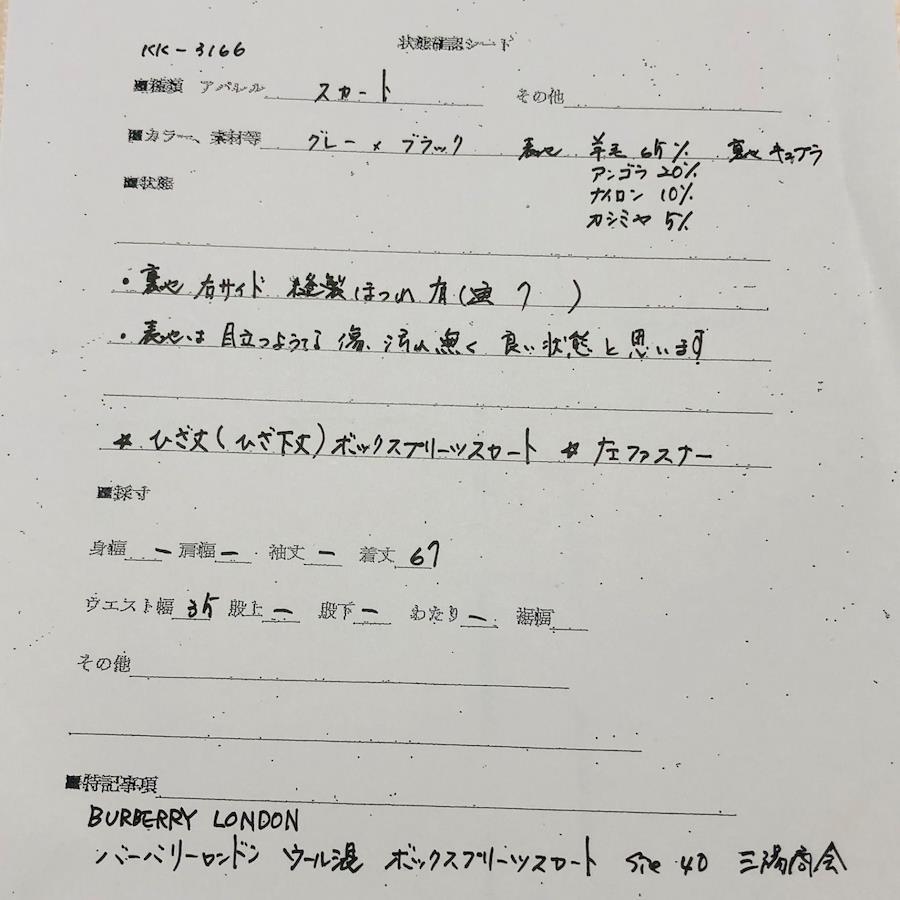 KK-3166
状態確認シート
■種類 アパレル スカート その他
■カラー、素材等 グレー×ブラック 表地 羊毛 65% 裏地 キュプラ
アンゴラ 20%
ナイロン 10%
カシミヤ 5%
■状態
・裏地 右サイド 縫製ほつれ 有(画 7 )
・表地は 目立つような 傷、汚れ 無く 良い状態 と 思います
* ひざ丈(ひざ下丈)ボックスプリーツスカート * 左ファスナー
■採寸
身幅 - 肩幅 - 袖丈 - 着丈 67
ウエスト幅 35 股上 - 股下 - わたり - 裾幅
その他
■特記事項
BURBERRY LONDON
バーバリーロンドン ウール混 ボックスプリーツスカート size 40 三陽商会